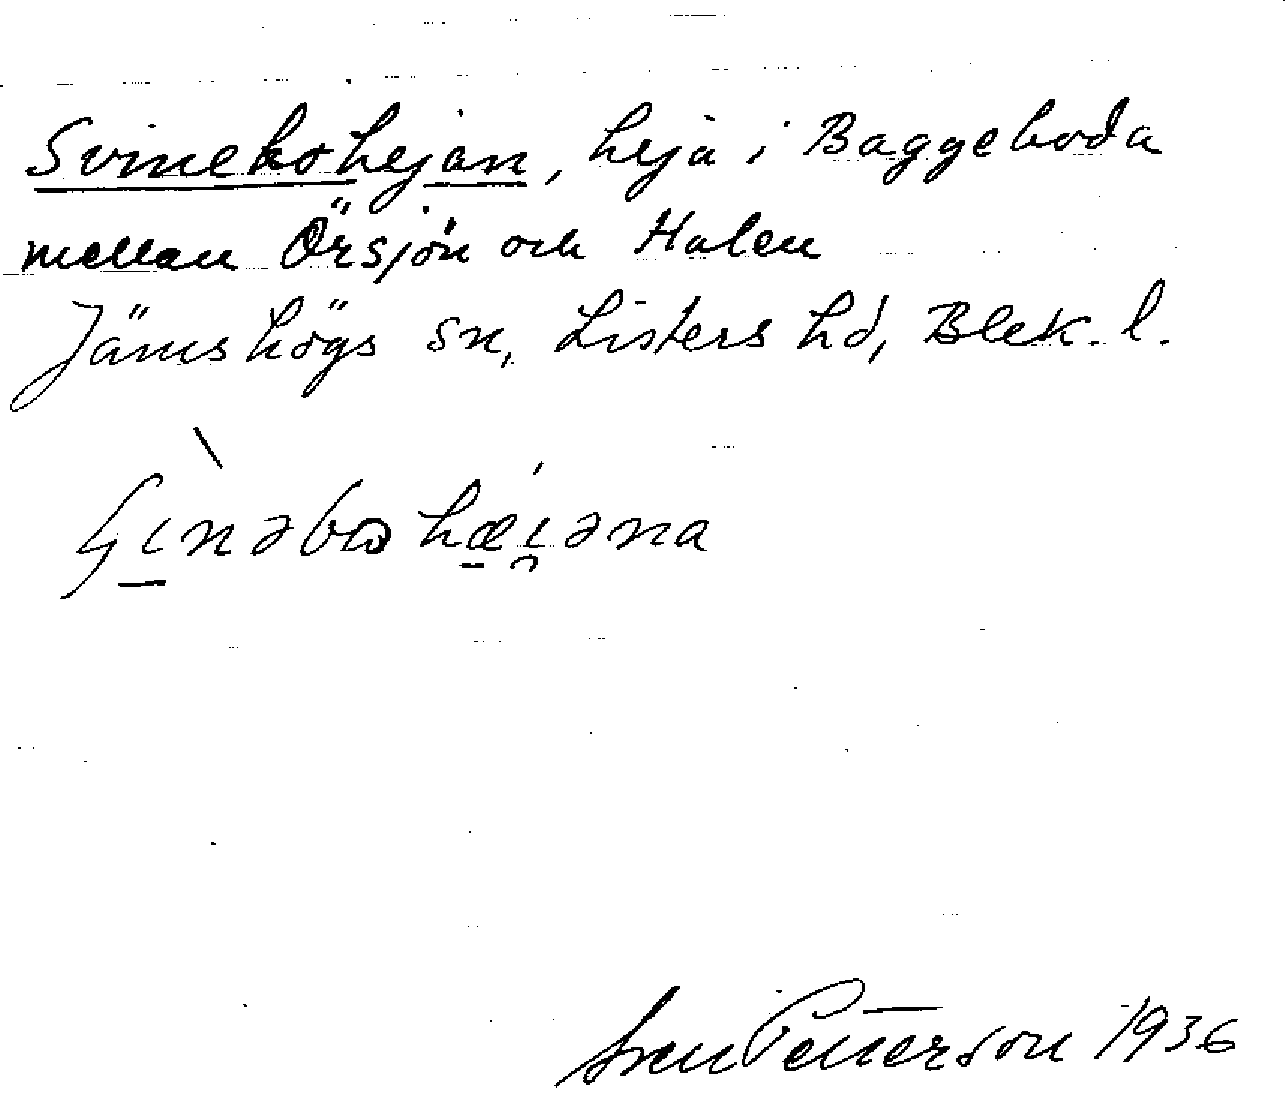 Svinebohejan, heja i Baggeboda
mellan Örsjön och Halen
Jämshögs sn, Listers hd, Blek. l.
Sven Petterson 1936